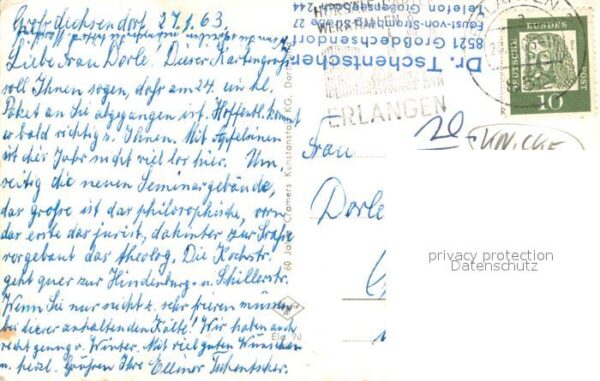 Großdechsendorf 27.1.63.
Liebe Frau Dorle! Dieser Kartengruß
soll Ihnen sagen, daß am 24. ein kl.
Paket an Sie abgegangen ist. Hoffentl. kommt
es bald richtig z. Ihnen. Mit Apfelsinen
ist dies Jahr nicht viel los hier. Um,
seitig die neuen Seminargebäude,
das große ist das philosophische, vorn
das erste das jurist., dahinter zur Straße
vorgebaut das theolog. Die Kochstr.
geht quer zur Hindenburg- u. Schillerstr.
Wenn Sie nur nicht z. sehr frieren müssen
bei dieser anhaltenden Kälte! Wir haben auch
recht genug v. Winter. Mit viel guten Wünschen
u. herzl. Grüßen Ihre Ellinor Tschentscher.
60 Jahre Cramers Kunstanstalt KG, Dort
Erla 70
Dr. Tschentscher
8521 Großdechsendorf
Faust-von-Stromberg-Straße 21
Telefon Erlangen 244
ERLANGEN
DEUTSCHE BUNDESPOST
10
20
KNICKE
Frau
Dorle
privacy protection
Datenschutz